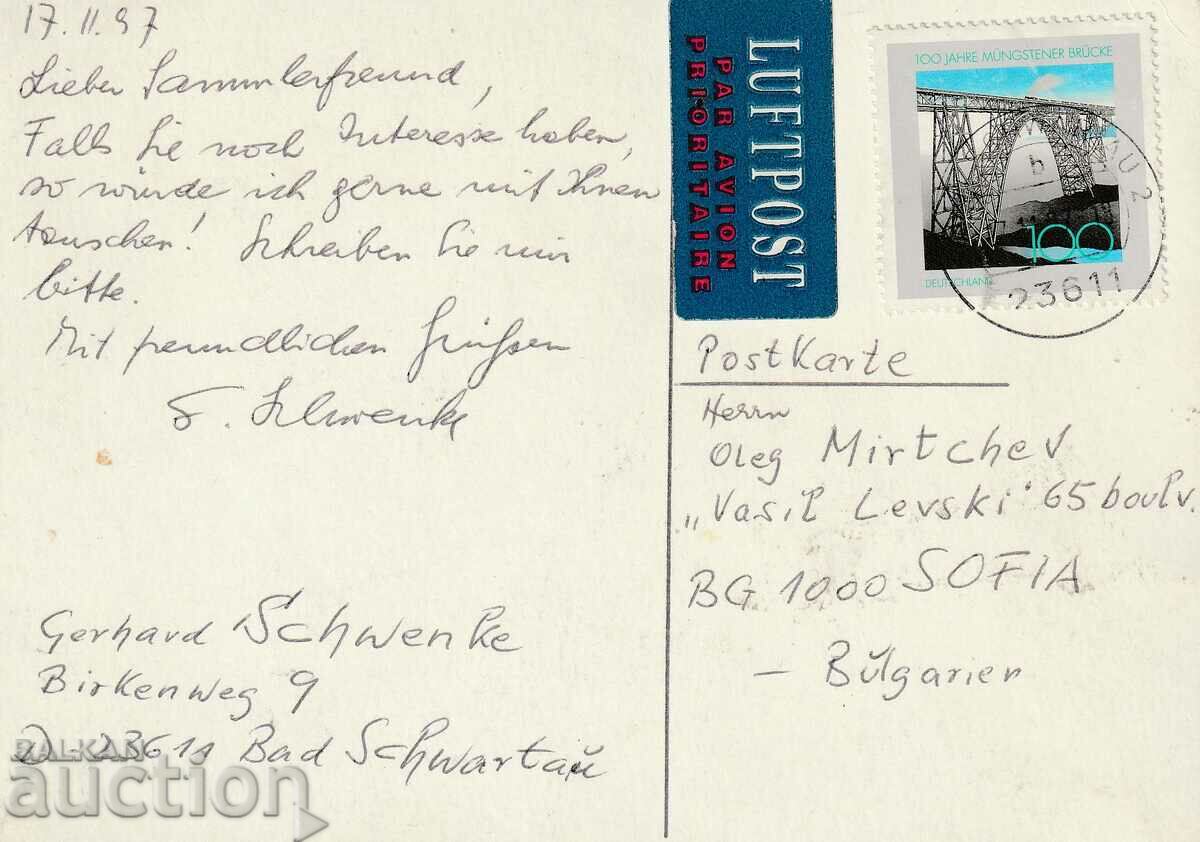 17.11.97
Lieber Sammlerfreund,
Falls Sie noch Interesse haben,
so würde ich gerne mit Ihnen
tauschen! Schreiben Sie mir
bitte.
Mit freundlichen Grüßen
G. Schwenke
Gerhard Schwenke
Birkenweg 9
D-23611 Bad Schwartau
LUFTPOST
PAR AVION
PRIORITAIRE
100 JAHRE MÜNGSTENER BRÜCKE
100
DEUTSCHLAND
AU 2
b
23611
Postkarte
Herrn
Oleg Mirtchev
„Vasil Levski“ 65 boulv.
BG 1000 SOFIA
- Bulgarien
BALKAN
auction